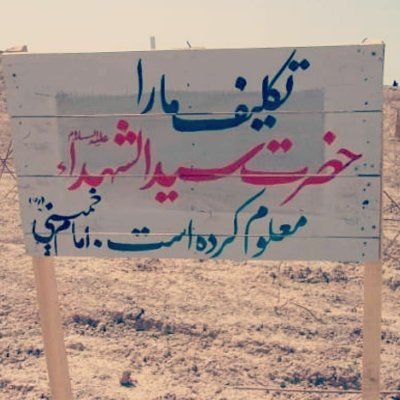 تکلیف ما را
حضرت سید الشهداء علیه السلام
معلوم کرده است. امام خمینی (ره)